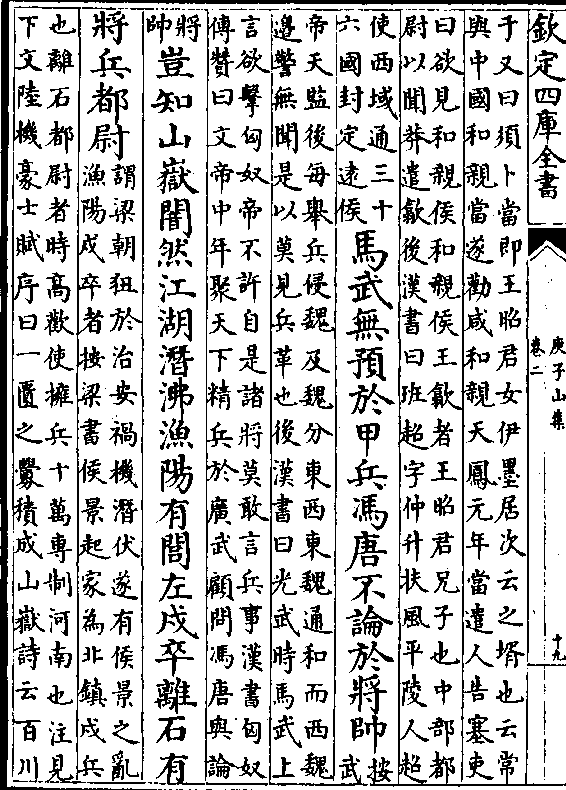 欽定四庫全書
庾子山集
卷二
十九
于又曰須卜當即王昭君女伊墨居次云之壻也云常
與中國和親當遂勸咸和親天鳳元年當遣人告塞吏
曰欲見和親侯和親侯王歙者王昭君兄子也中部都
尉以聞莽遣歙後漢書曰班超字仲升扶風平陵人超
使西域通三十
六國封定遠侯
馬武無預於甲兵馮唐不論於將帥
按
武
帝天監後每舉兵侵魏及魏分東西東魏通和而西魏
邉警無聞是以莫見兵革也後漢書曰光武時馬武上
言欲擊匈奴帝不許自是諸將莫敢言兵事漢書匈奴
傳贊曰文帝中年聚天下精兵於廣武顧問馮唐與論
將
帥
豈知山嶽闇然江湖潛沸漁陽有閭左戍卒離石有
將兵都尉
謂梁朝狃於治安禍機潛伏遂有侯景之亂
漁陽戍卒者按梁書侯景起家為北鎮戍兵
也離石都尉者時高歡使擁兵十萬專制河南也注見
下文陸機豪士賦序曰一匱之釁積成山嶽詩云百川